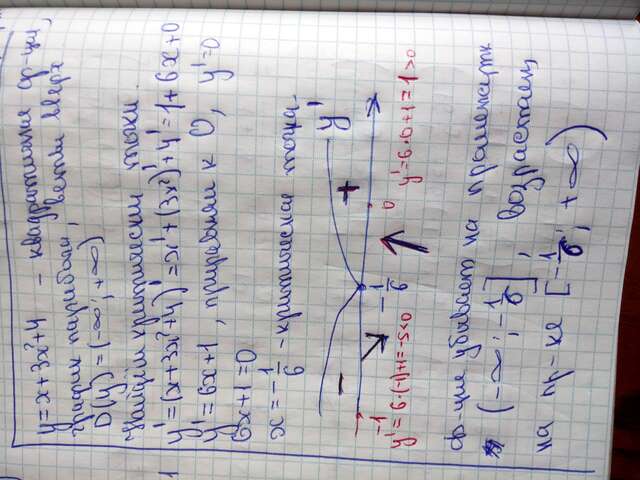 y = x + 3x² + 4 - квадратичная ф-ция,
график парабола, ветви вверх
D(y) = (-∞; +∞)
Найдём критические точки.
y' = (x + 3x² + 4)' = x' + (3x²)' + 4' = 1 + 6x + 0
y' = 6x + 1, приравняем к 0, y' = 0
6x + 1 = 0
x = -1/6 - критическая точка.
- + y'
-1 -1/6 0
y' = 6·(-1)+1 = -5 < 0 y' = 6·0+1 = 1 > 0
ф-ция убывает на промежутке
(-∞; -1/6], возрастает
на пр-ке [-1/6; +∞)